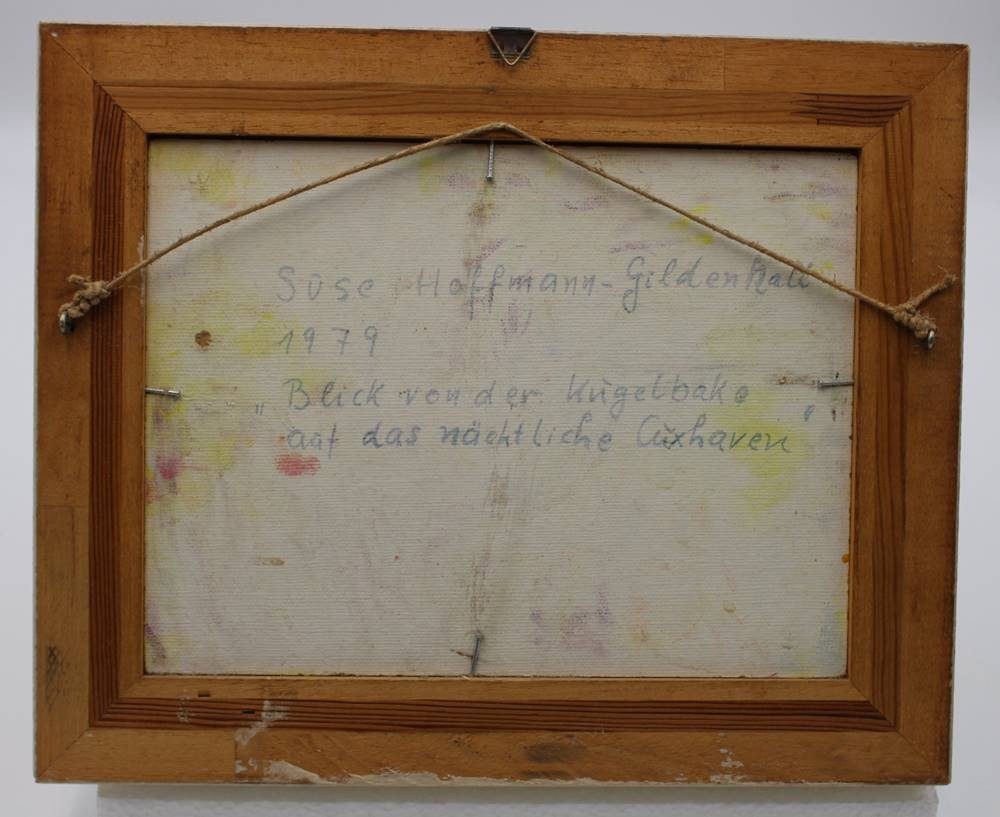 Süse Hoffmann-Gildenhall
1979
„Blick von der Kugelbake
auf das nächtliche Cuxhaven"